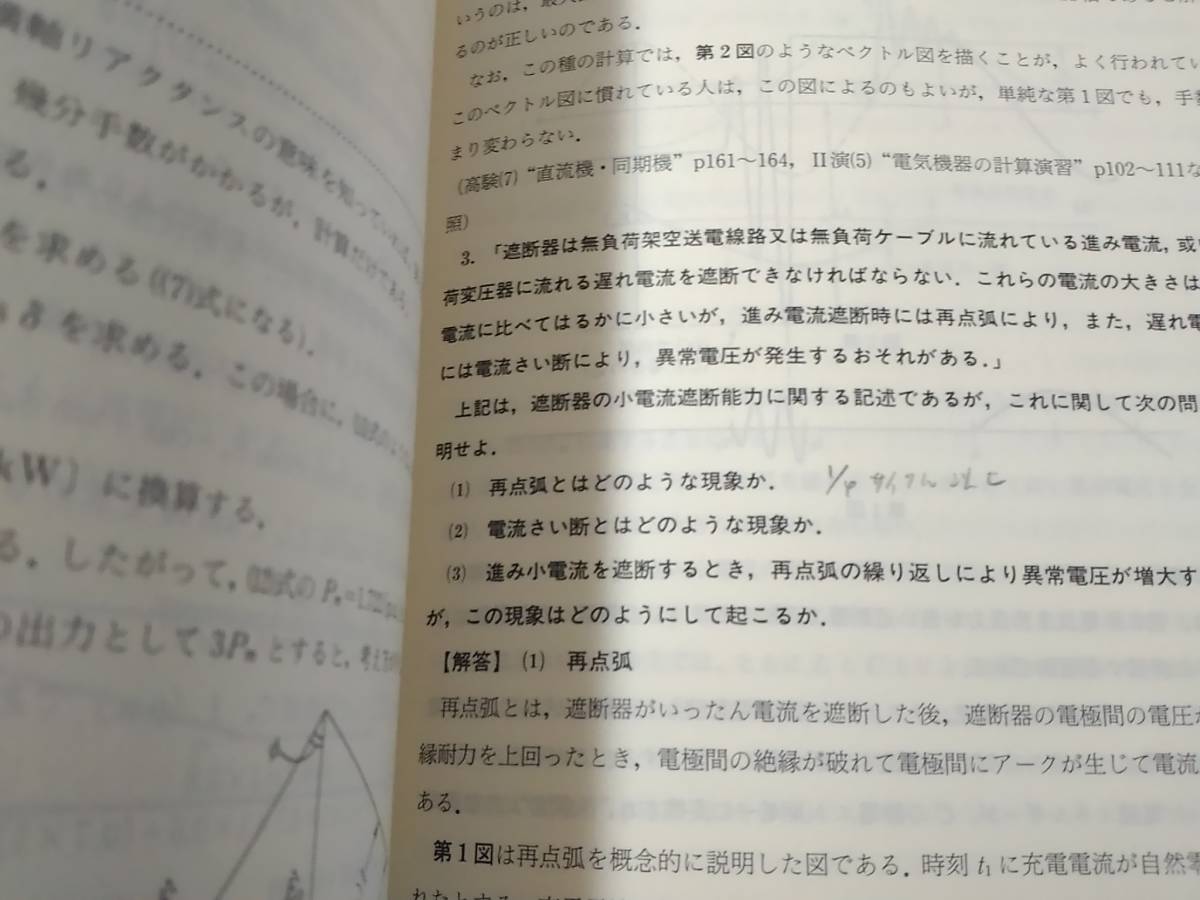 横軸リアクタンスの意味を知っていれば、
幾分手数がかかるが，計算だけである．
る．
を求める ((7)式になる)．
δ を求める．この場合に，
kW〕に換算する．
る．したがって，(12)式の
の出力として 3Pm とすると，
いうのは，最大
るのが正しいのである．
なお，この種の計算では，第2図のようなベクトル図を描くことが，よく行われてい
このベクトル図に慣れている人は，この図によるのもよいが，単純な第1図でも，手数
まり変わらない．
(高験(7) “直流機・同期機” p161～164，II演(5) “電気機器の計算演習” p102～111な
照)
3．「遮断器は無負荷架空送電線路又は無負荷ケーブルに流れている進み電流，或い
荷変圧器に流れる遅れ電流を遮断できなければならない．これらの電流の大きさは
電流に比べてはるかに小さいが，進み電流遮断時には再点弧により，また，遅れ電
には電流さい断により，異常電圧が発生するおそれがある．」
上記は，遮断器の小電流遮断能力に関する記述であるが，これに関して次の問
明せよ．
(1) 再点弧とはどのような現象か． 1/4 サイクル
(2) 電流さい断とはどのような現象か．
(3) 進み小電流を遮断するとき，再点弧の繰り返しにより異常電圧が増大す
が，この現象はどのようにして起こるか．
【解答】 (1) 再点弧
再点弧とは，遮断器がいったん電流を遮断した後，遮断器の電極間の電圧が
縁耐力を上回ったとき，電極間の絶縁が破れて電極間にアークが生じて電流
ある．
第1図は再点弧を概念的に説明した図である．時刻 t₁ に充電電流が自然零